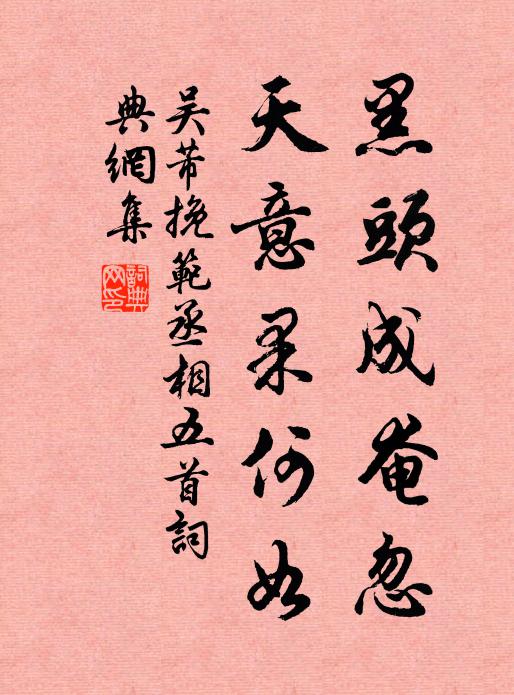 黑頭成奄忽
天意果何如
吳芾挽範丞相五首詞
典網集
詞典網印